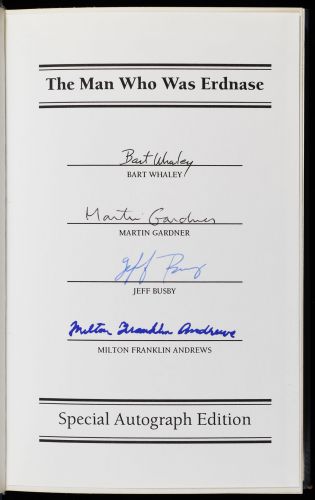 The Man Who Was Erdnase
Bart Whaley
BART WHALEY
Martin Gardner
MARTIN GARDNER
Jeff Busby
JEFF BUSBY
Milton Franklin Andrews
MILTON FRANKLIN ANDREWS
Special Autograph Edition